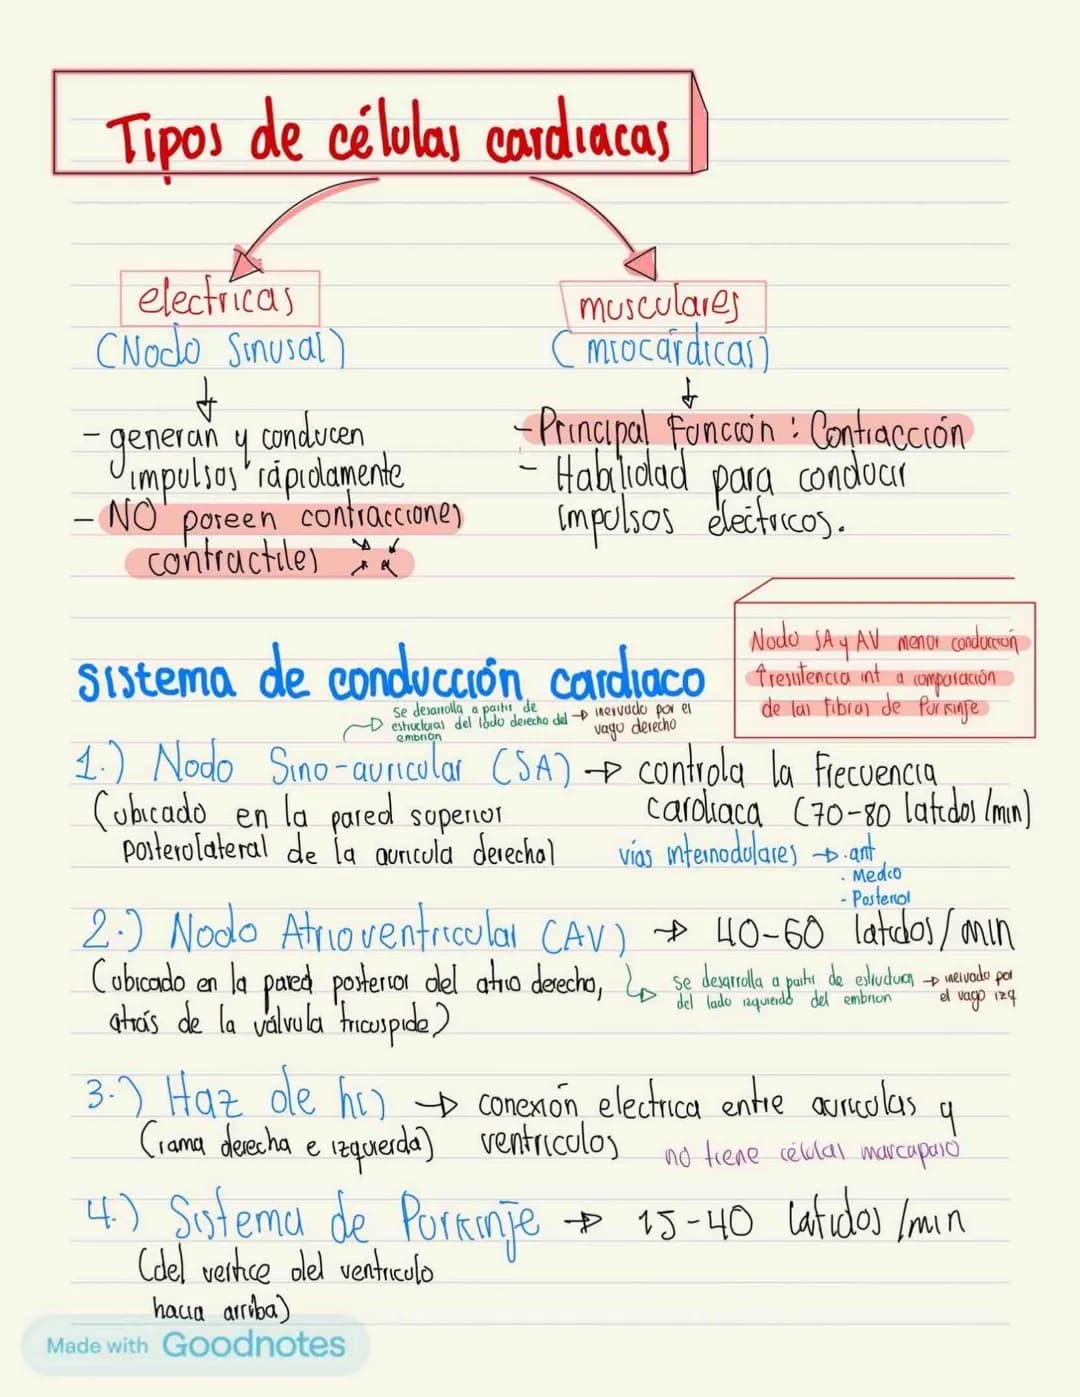 Tipos de células cardiacas
electricas
(Nodo Sinusal)
- generan y conducen
impulsos rápidamente
- NO poseen contracciones
contractiles
musculares
(miocárdicas)
- Principal Función : Contracción
- Habilidad para conducir
impulsos electricos.
Nodo SA y AV menor conducción
↑resistencia int a comparación
de las fibras de Purkinje
sistema de conducción cardiaco
se desarrolla a partir de
estructuras del lado derecho del
embrion
→ inervado por el
vago derecho
1.) Nodo Sino-auricular (SA) → controla la Frecuencia
cardiaca (70-80 latidos/min)
(ubicado en la pared superior
posterolateral de la auricula derecha)
vías internodulares → . ant
. Medio
- Posterior
2.) Nodo Atrioventricular (AV) → 40-60 latidos/min
(ubicado en la pared posterior del atrio derecho,
atrás de la válvula tricuspide)
se desarrolla a partir de estructura → inervado por
del lado izquierdo del embrion el vago izq
3.) Haz de his → conexión electrica entre auriculas y
ventriculos
(rama derecha e izquierda)
no tiene células marcapaso
4.) Sistema de Purkinje → 15-40 latidos/min
(del vertice del ventriculo
hacia arriba)
Made with Goodnotes